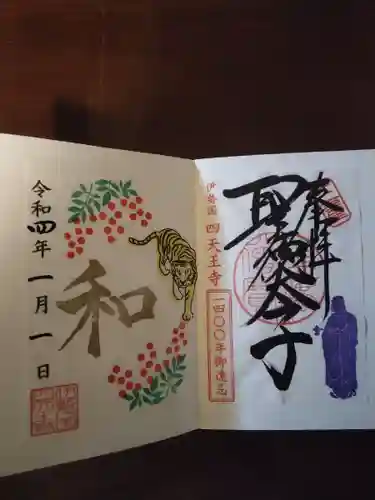 奉拝
聖徳太子
伊勢國 四天王寺
一四〇〇年御遠忌
和
令和四年一月一日